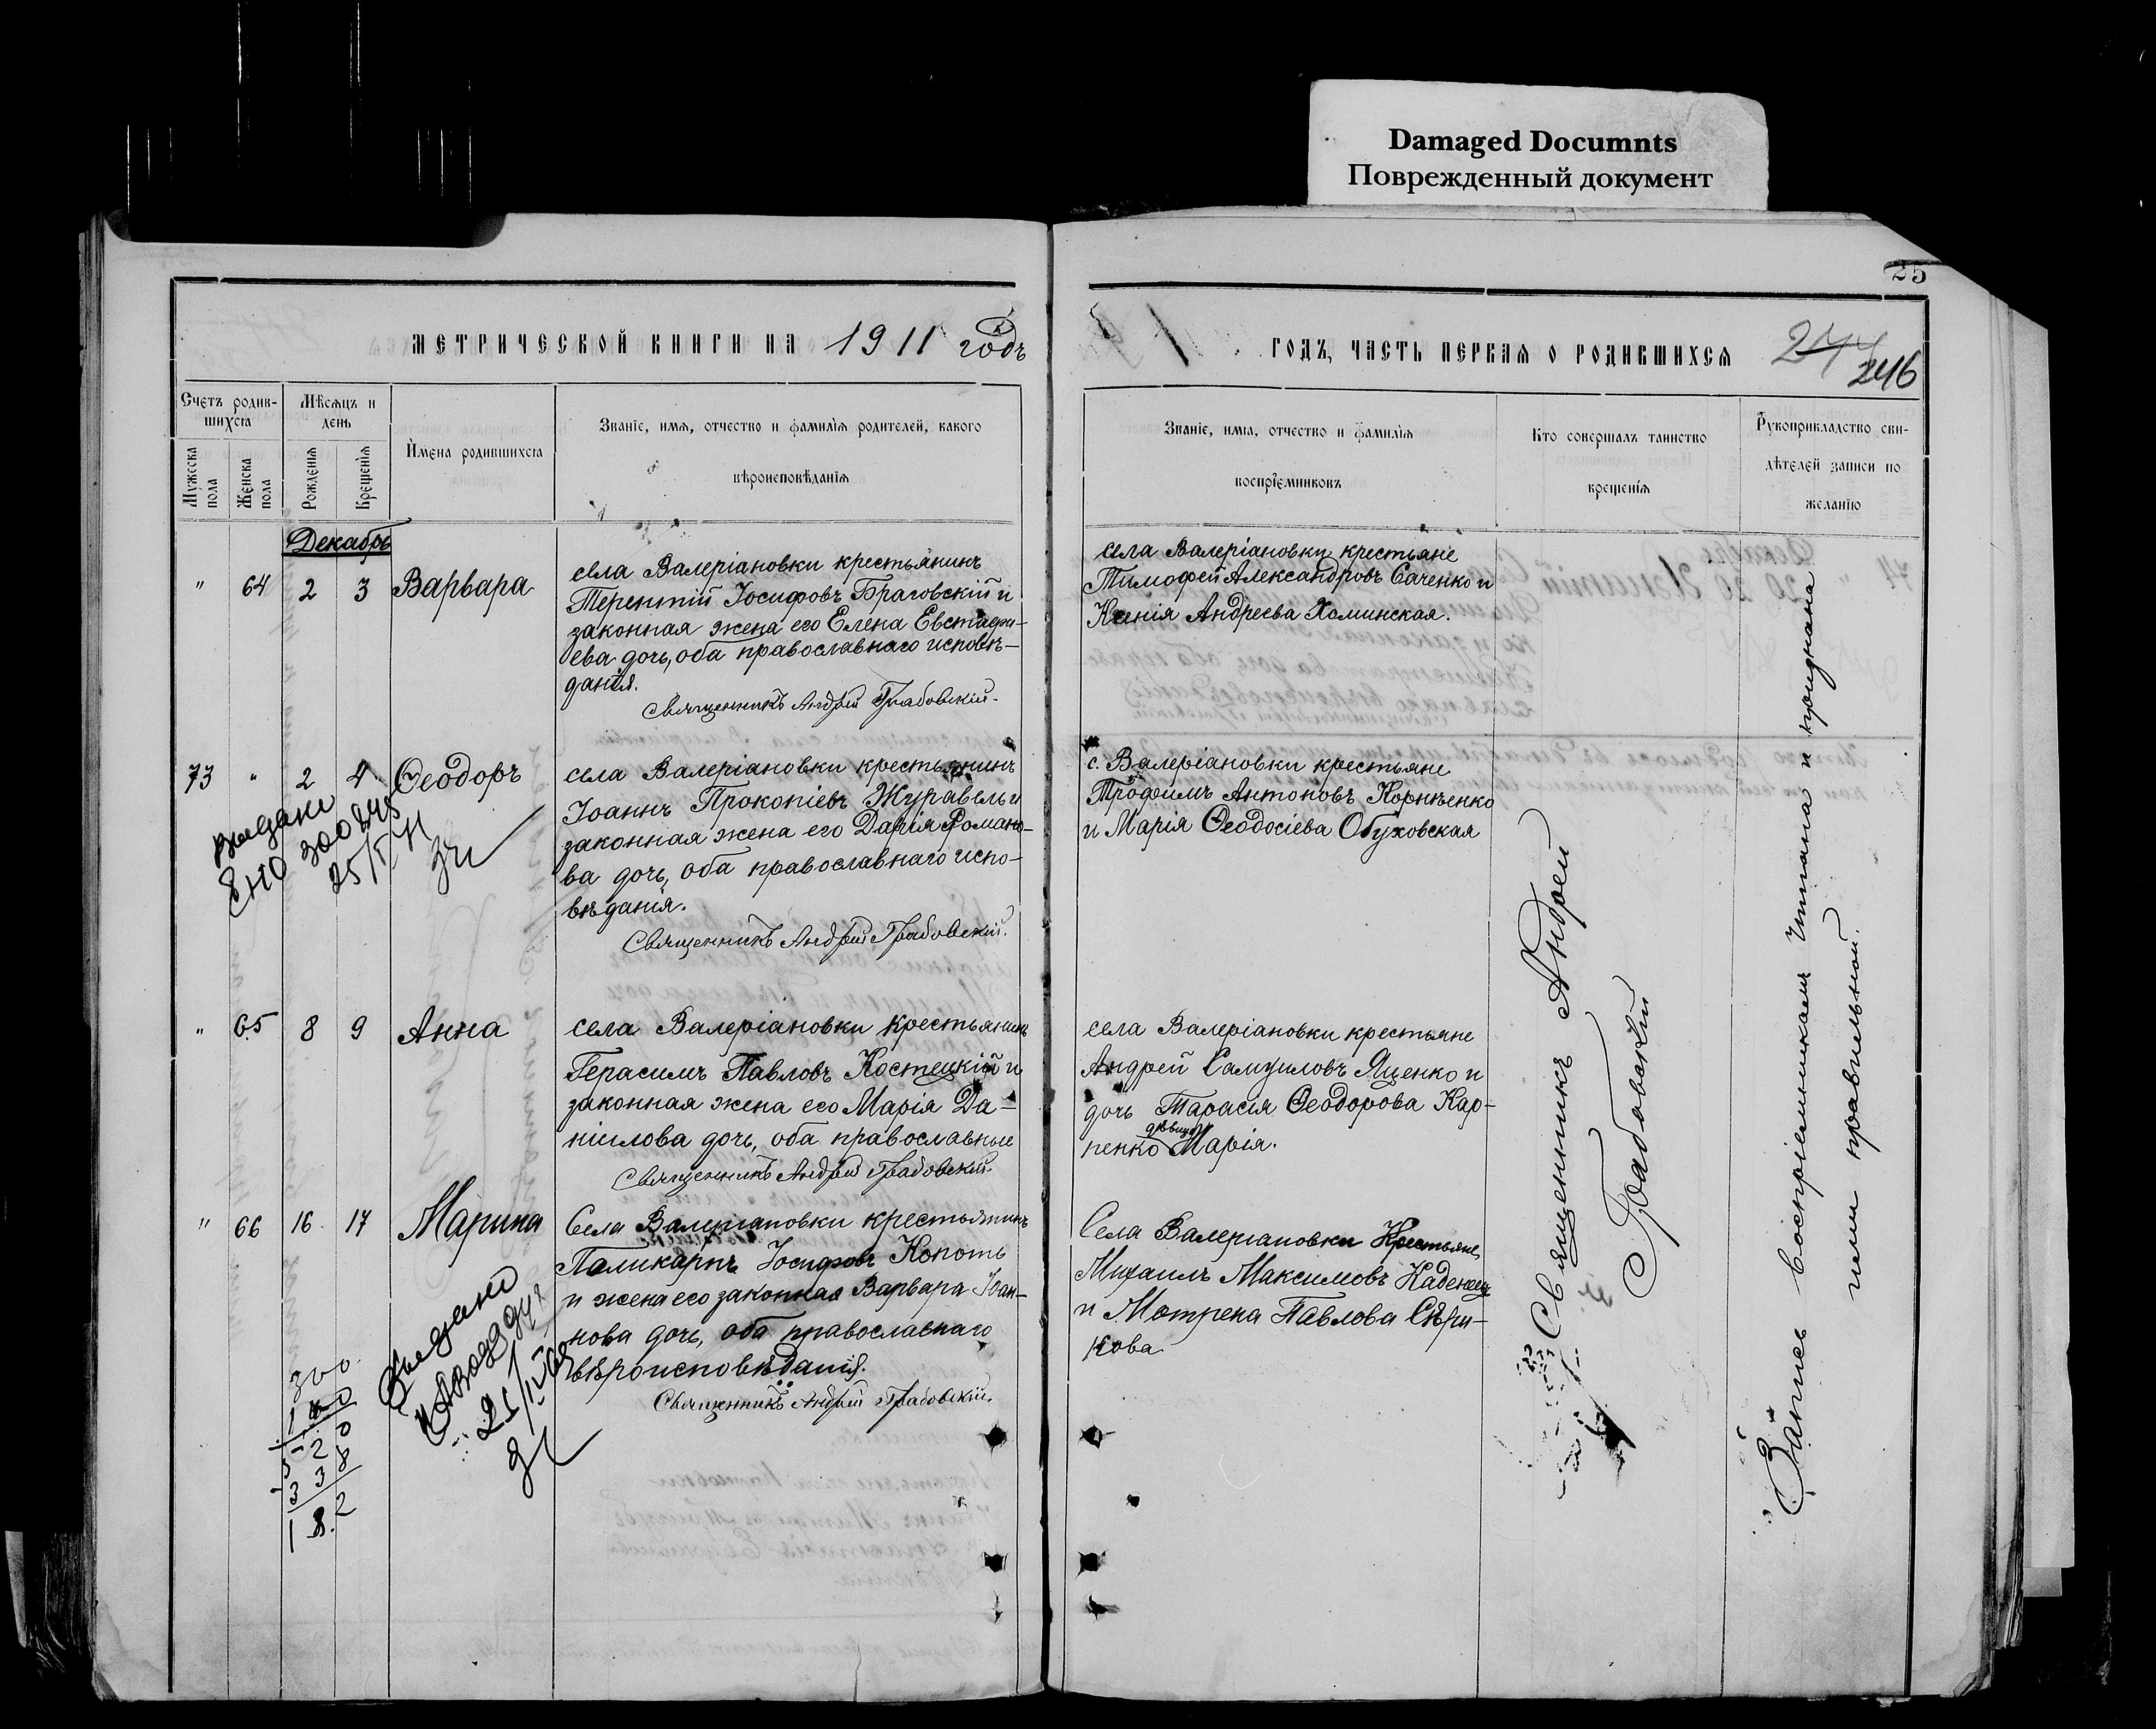 Damaged Documnts
Поврежденный документ
25
МЕТРИЧЕСКОЙ КНИГИ НА 1911 годъ
ГОДЪ, ЧАСТЬ ПЕРВАЯ О РОДИВШИХСЯ
244
246
Счетъ родив-
шихся
Мѣсяцъ и
день
Мужеска
пола
Женска
пола
Рожденія
Крещенія
Имена родившихся
Званіе, имя, отчество и фамилія родителей, какого
вѣроисповѣданія
Званіе, имя, отчество и фамилія
воспріемниковъ
Кто совершалъ таинство
крещенія
Рукоприкладство сви-
дѣтелей записи по
желанію
Декабрь
" 64 2 3 Варвара
села Валеріановки крестьянинъ
Терентій Іосифовъ Браговскій и
законная жена его Елена Евстафи-
ева дочь, оба православнаго исповѣ-
данія.
Священникъ Андрей Грабовскій.
села Валеріановки крестьяне
Тимофей Александровъ Саченко и
Ксенія Андреева Хоминская.
73 " 2 4 Ѳеодоръ
села Валеріановки крестьянинъ
Іоаннъ Прокопіевъ Журавель и
законная жена его Дарія Романо-
ва дочь, оба православнаго испо-
вѣданія.
Священникъ Андрей Грабовскій.
с. Валеріановки крестьяне
Трофимъ Антоновъ Корнѣенко
и Марія Ѳеодосіева Обуховская
" 65 8 9 Анна
села Валеріановки крестьянинъ
Герасимъ Павловъ Костецкій и
законная жена его Марія Да-
ніилова дочь, оба православные
Священникъ Андрей Грабовскій.
села Валеріановки крестьяне
Андрей Самуиловъ Яценко и
дочь Тарасія Ѳеодорова Кар-
девица
пенко Марія.
" 66 16 17 Марина
Села Валеріановки крестьянинъ
Поликарпъ Іосифовъ Копоть
и жена его законная Варвара Іоан-
нова дочь, оба православнаго
вѣроисповѣданія.
Священникъ Андрей Грабовскій.
Села Валеріановки Крестьяне
Михаилъ Максимовъ Каденец
и Мотрена Павлова Сѣри-
кова
Видано
Видано
300
520
338
182
Священникъ Андрей
Грабовскій
Запись воспріемникамъ читана и признана
ими правильной.